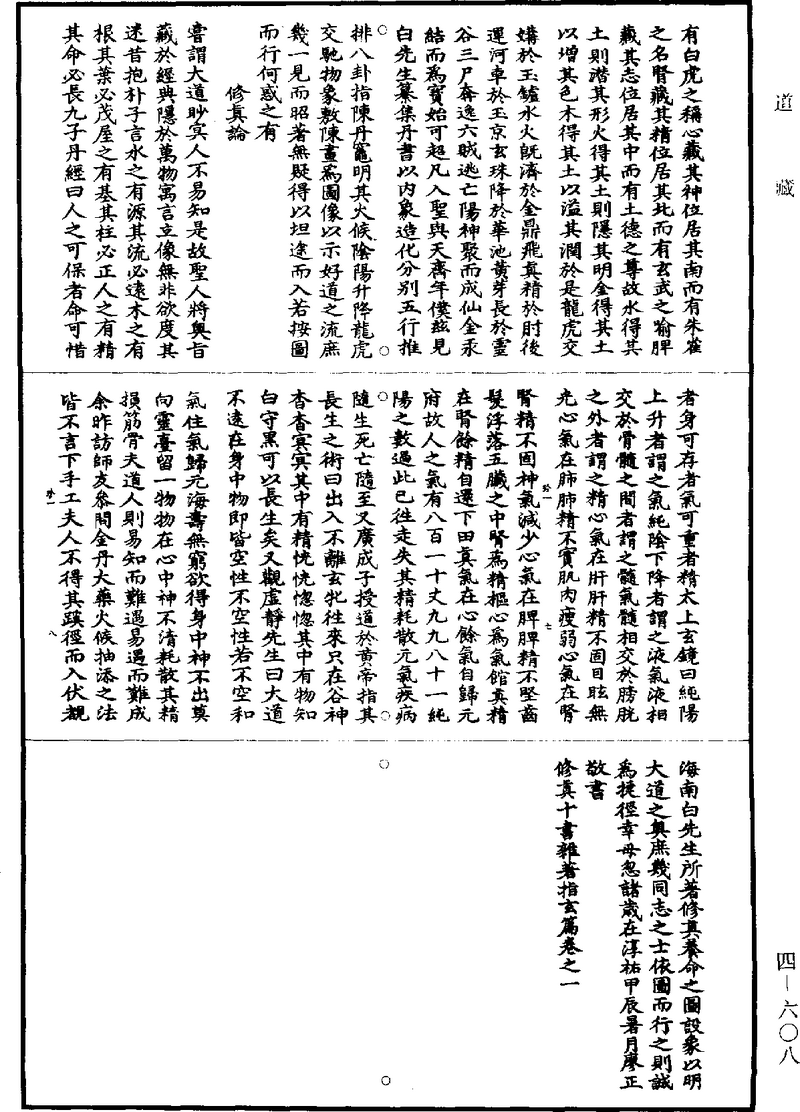 道藏
有白虎之稱心藏其神位居其南而有朱雀
之名腎藏其精位居其北而有玄武之喻脾
藏其志位居其中而有土德之尊故水得其
土則潛其形火得其土則隱其明金得其土
以增其色木得其土以溢其潤於是龍虎交
媾於玉鑪水火既濟於金鼎飛真精於肘後
運河車於玉京玄珠降於華池黃芽長於靈
谷三尸奔逸六賊逃亡陽神聚而成仙金汞
結而為寶始可超凡入聖與天齊年僕茲見
白先生纂集丹書以內象造化分別五行推
排八卦指陳丹竈明其火候陰陽升降龍虎
交馳物象敷陳畫為圖像以示好道之流庶
幾一見而昭著無疑得以坦途而入若按圖
而行何惑之有
修真論
嘗謂大道眇冥人不易知是故聖人將輿旨
藏於經典隱於萬物寓言立像無非欲度其
迷昔抱朴子言水之有源其流必遠木之有
根其葉必茂屋之有基其柱必正人之有精
其命必長九子丹經曰人之可保者命可惜
者身可存者氣可重者精太上玄鏡曰純陽
上升者謂之氣純陰下降者謂之液氣液相
交於骨髓之間者謂之髓氣髓相交於膀胱
之外者謂之精心氣在肝肝精不固目眩無
光心氣在肺肺精不實肌肉瘦弱心氣在腎
腎精不固神氣減少心氣在脾脾精不堅齒
髮浮落五臟之中腎為精樞心為氣館真精
在腎餘精自還下田真氣在心餘氣自歸元
府故人之氣有八百一十丈九九八十一純
陽之數過此已往走失其精耗散元氣疾病
隨生死亡隨至又廣成子授道於黃帝指其
長生之術曰出入不離玄牝往來只在谷神
杳杳冥冥其中有精恍恍惚惚其中有物知
白守黑可以長生矣又觀虛靜先生曰大道
不遠在身中物即皆空性不空性若不空和
氣住氣歸元海壽無窮欲得身中神不出莫
向靈臺留一物物在心中神不清耗散其精
損筋骨夫道人則易知而難遇易遇而難成
余昨訪師友參問金丹大藥火候抽添之法
皆不言下手工夫人不得其蹊徑而入伏覩
海南白先生所著修真養命之圖設象以明
大道之奧庶幾同志之士依圖而行之則誠
為捷徑幸毋忽諸歲在淳祐甲辰暑月廖正
敬書
修真十書雜著指玄篇卷之一
四－六〇八